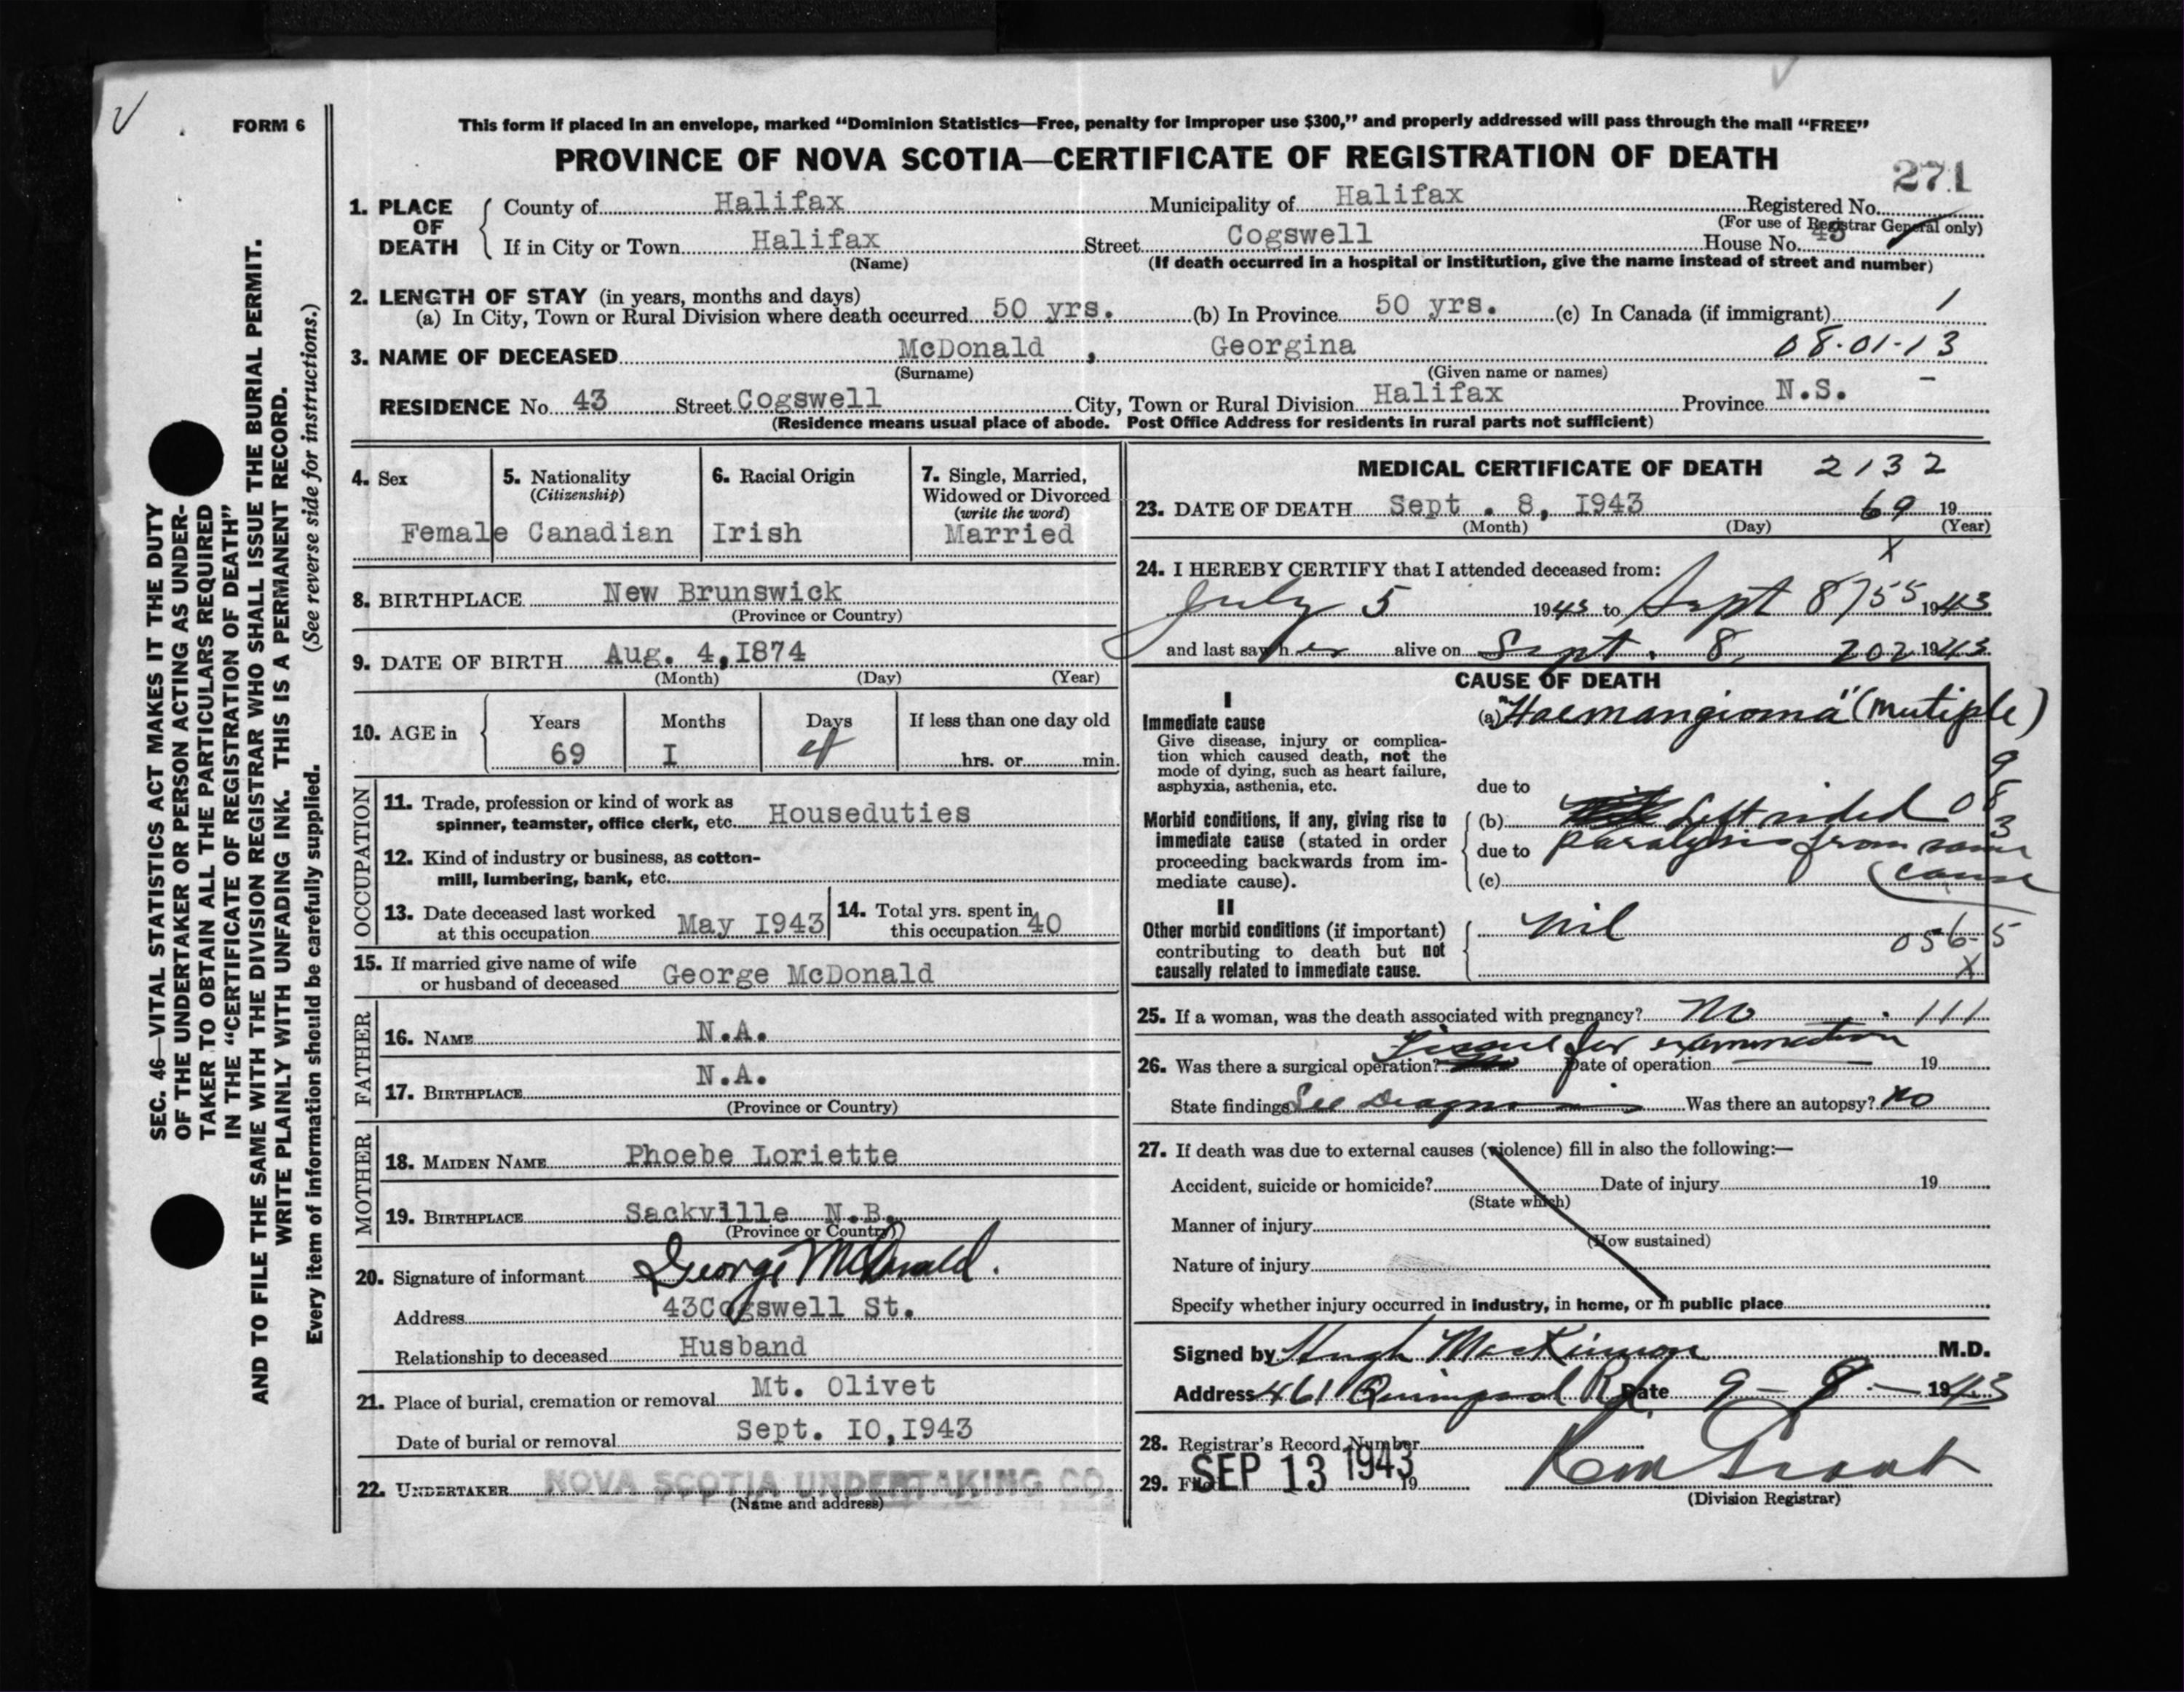 FORM 6
This form if placed in an envelope, marked “Dominion Statistics—Free, penalty for improper use $300,” and properly addressed will pass through the mail “FREE”
PROVINCE OF NOVA SCOTIA—CERTIFICATE OF REGISTRATION OF DEATH
271
1. PLACE OF DEATH County of Halifax Municipality of Halifax Registered No.
(For use of Registrar General only)
If in City or Town Halifax Street Cogswell House No. 43
(Name) (If death occurred in a hospital or institution, give the name instead of street and number)
2. LENGTH OF STAY (in years, months and days)
(a) In City, Town or Rural Division where death occurred 50 yrs. (b) In Province 50 yrs. (c) In Canada (if immigrant) 1
3. NAME OF DECEASED McDonald , Georgina 08-01-13
(Surname) (Given name or names)
RESIDENCE No. 43 Street Cogswell City, Town or Rural Division Halifax Province N.S.
(Residence means usual place of abode. Post Office Address for residents in rural parts not sufficient)
4. Sex 5. Nationality (Citizenship) 6. Racial Origin 7. Single, Married, Widowed or Divorced (write the word)
Female Canadian Irish Married
8. BIRTHPLACE New Brunswick
(Province or Country)
9. DATE OF BIRTH Aug. 4, 1874
(Month) (Day) (Year)
10. AGE in Years Months Days If less than one day old
69 I 4 hrs. or min.
OCCUPATION
11. Trade, profession or kind of work as
spinner, teamster, office clerk, etc. Houseduties
12. Kind of industry or business, as cotton-
mill, lumbering, bank, etc.
13. Date deceased last worked
at this occupation May I943
14. Total yrs. spent in
this occupation 40
15. If married give name of wife
or husband of deceased George McDonald
FATHER
16. NAME N.A.
17. BIRTHPLACE N.A.
(Province or Country)
MOTHER
18. MAIDEN NAME Phoebe Loriette
19. BIRTHPLACE Sackville N.B.
(Province or Country)
20. Signature of informant George McDonald.
Address 43Cogswell St.
Relationship to deceased Husband
21. Place of burial, cremation or removal Mt. Olivet
Date of burial or removal Sept. IO,I943
22. UNDERTAKER NOVA SCOTIA UNDERTAKING CO.
(Name and address)
MEDICAL CERTIFICATE OF DEATH 2132
23. DATE OF DEATH Sept . 8, I943 69 19
(Month) (Day) (Year)
X
24. I HEREBY CERTIFY that I attended deceased from:
July 5 1943 to Sept 8 755 1943
and last saw her alive on Sept. 8, 202 1943
CAUSE OF DEATH
I
Immediate cause (a) "Haemangioma" (mutiple)
Give disease, injury or complica-
tion which caused death, not the
mode of dying, such as heart failure,
asphyxia, asthenia, etc. due to
Morbid conditions, if any, giving rise to
immediate cause (stated in order
proceeding backwards from im-
mediate cause).
(b) Left sided
due to paralysis from same
(c) cause
II
Other morbid conditions (if important)
contributing to death but not
causally related to immediate cause.
nil
056-5
X
25. If a woman, was the death associated with pregnancy? No 111
Tissue for examination
26. Was there a surgical operation? Date of operation 19
State findings See Diagnosis Was there an autopsy? No
27. If death was due to external causes (violence) fill in also the following:—
Accident, suicide or homicide? Date of injury 19
(State which)
Manner of injury
(How sustained)
Nature of injury
Specify whether injury occurred in industry, in home, or in public place
Signed by Hugh MacKinnon M.D.
Address 461 Quinpool Rd. Date 9 - 8 - 1943
28. Registrar's Record Number
29. Filed SEP 13 1943 19
(Division Registrar)
SEC. 46—VITAL STATISTICS ACT MAKES IT THE DUTY
OF THE UNDERTAKER OR PERSON ACTING AS UNDER-
TAKER TO OBTAIN ALL THE PARTICULARS REQUIRED
IN THE “CERTIFICATE OF REGISTRATION OF DEATH”
AND TO FILE THE SAME WITH THE DIVISION REGISTRAR WHO SHALL ISSUE THE BURIAL PERMIT.
WRITE PLAINLY WITH UNFADING INK. THIS IS A PERMANENT RECORD.
Every item of information should be carefully supplied. (See reverse side for instructions.)